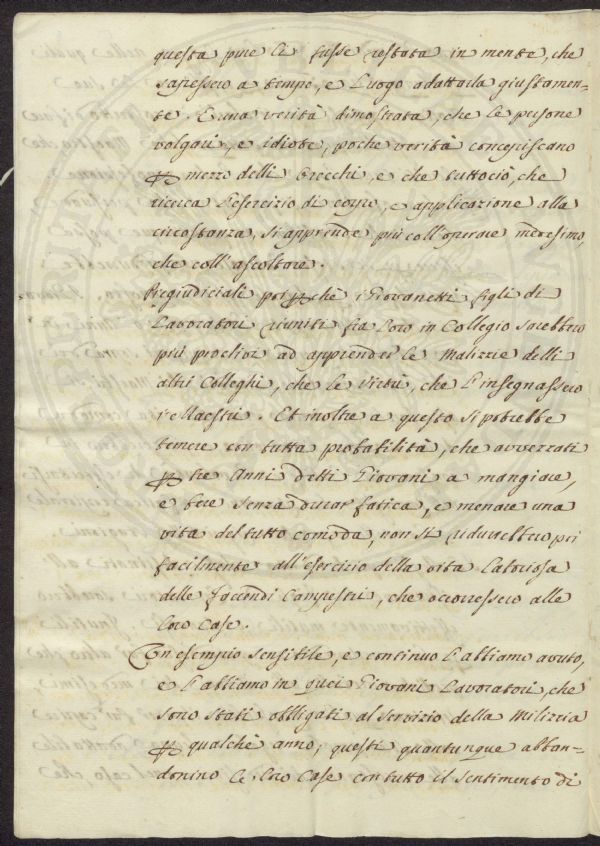 questa pure li fusse restata in mente, che
sapessero a tempo, e Luogo adattarla giustamen-
te. È una verità dimostrata, che le persone
volgari, e idiote, poche verità concepiscano
p mezzo delli orecchi, e che tuttociò, che
ricerca l'esercizio di corpo, e applicazione alla
circostanza, si apprende più coll'operare medesimo,
che coll'ascoltare.
Pregiudiciali poi pchè i Giovanetti figli di
Lavoratori riuniti fra Loro in Collegio sarebbero
più proclivi ad apprender le Malizzie delli
altri Colleghi, che le Virtù, che l'insegnassero
i Maestri. Et inoltre a questo si potrebbe
temere con tutta probabilità, che avvezzati
p tre Anni detti Giovani a mangiare,
e bere senza durar fatica, e menare una
vita del tutto comoda, non si ridurrebbero poi
facilmente all'esercizio della vita laboriosa
delle Faccende Campestri, che occorressero alle
Loro Case.
Un esempio sensibile, e continuo l'abbiamo avuto,
e l'abbiamo in quei Giovani Lavoratori, che
sono stati obbligati al servizio della Milizzia
p qualche anno; questi quantunque abban-
donino le Loro Case con tutto il sentimento di